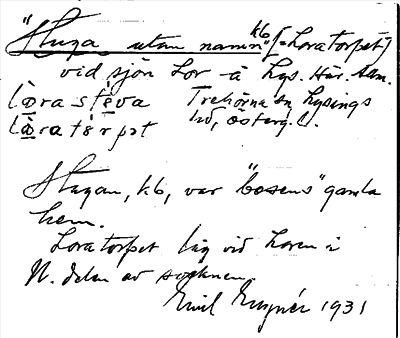 "Stuga utan namn" kb [=Loratorpet]
vid sjön Lor -å Lys. Här. Allm.
Lòra stęva Trehörna sn Lysings
Lòratǫrpət hd, Österg. l.
Stugan, kb, var "bosens" gamla
hem.
Loratorpet låg vid Loren i
N. delen av socknen.
Emil 1931